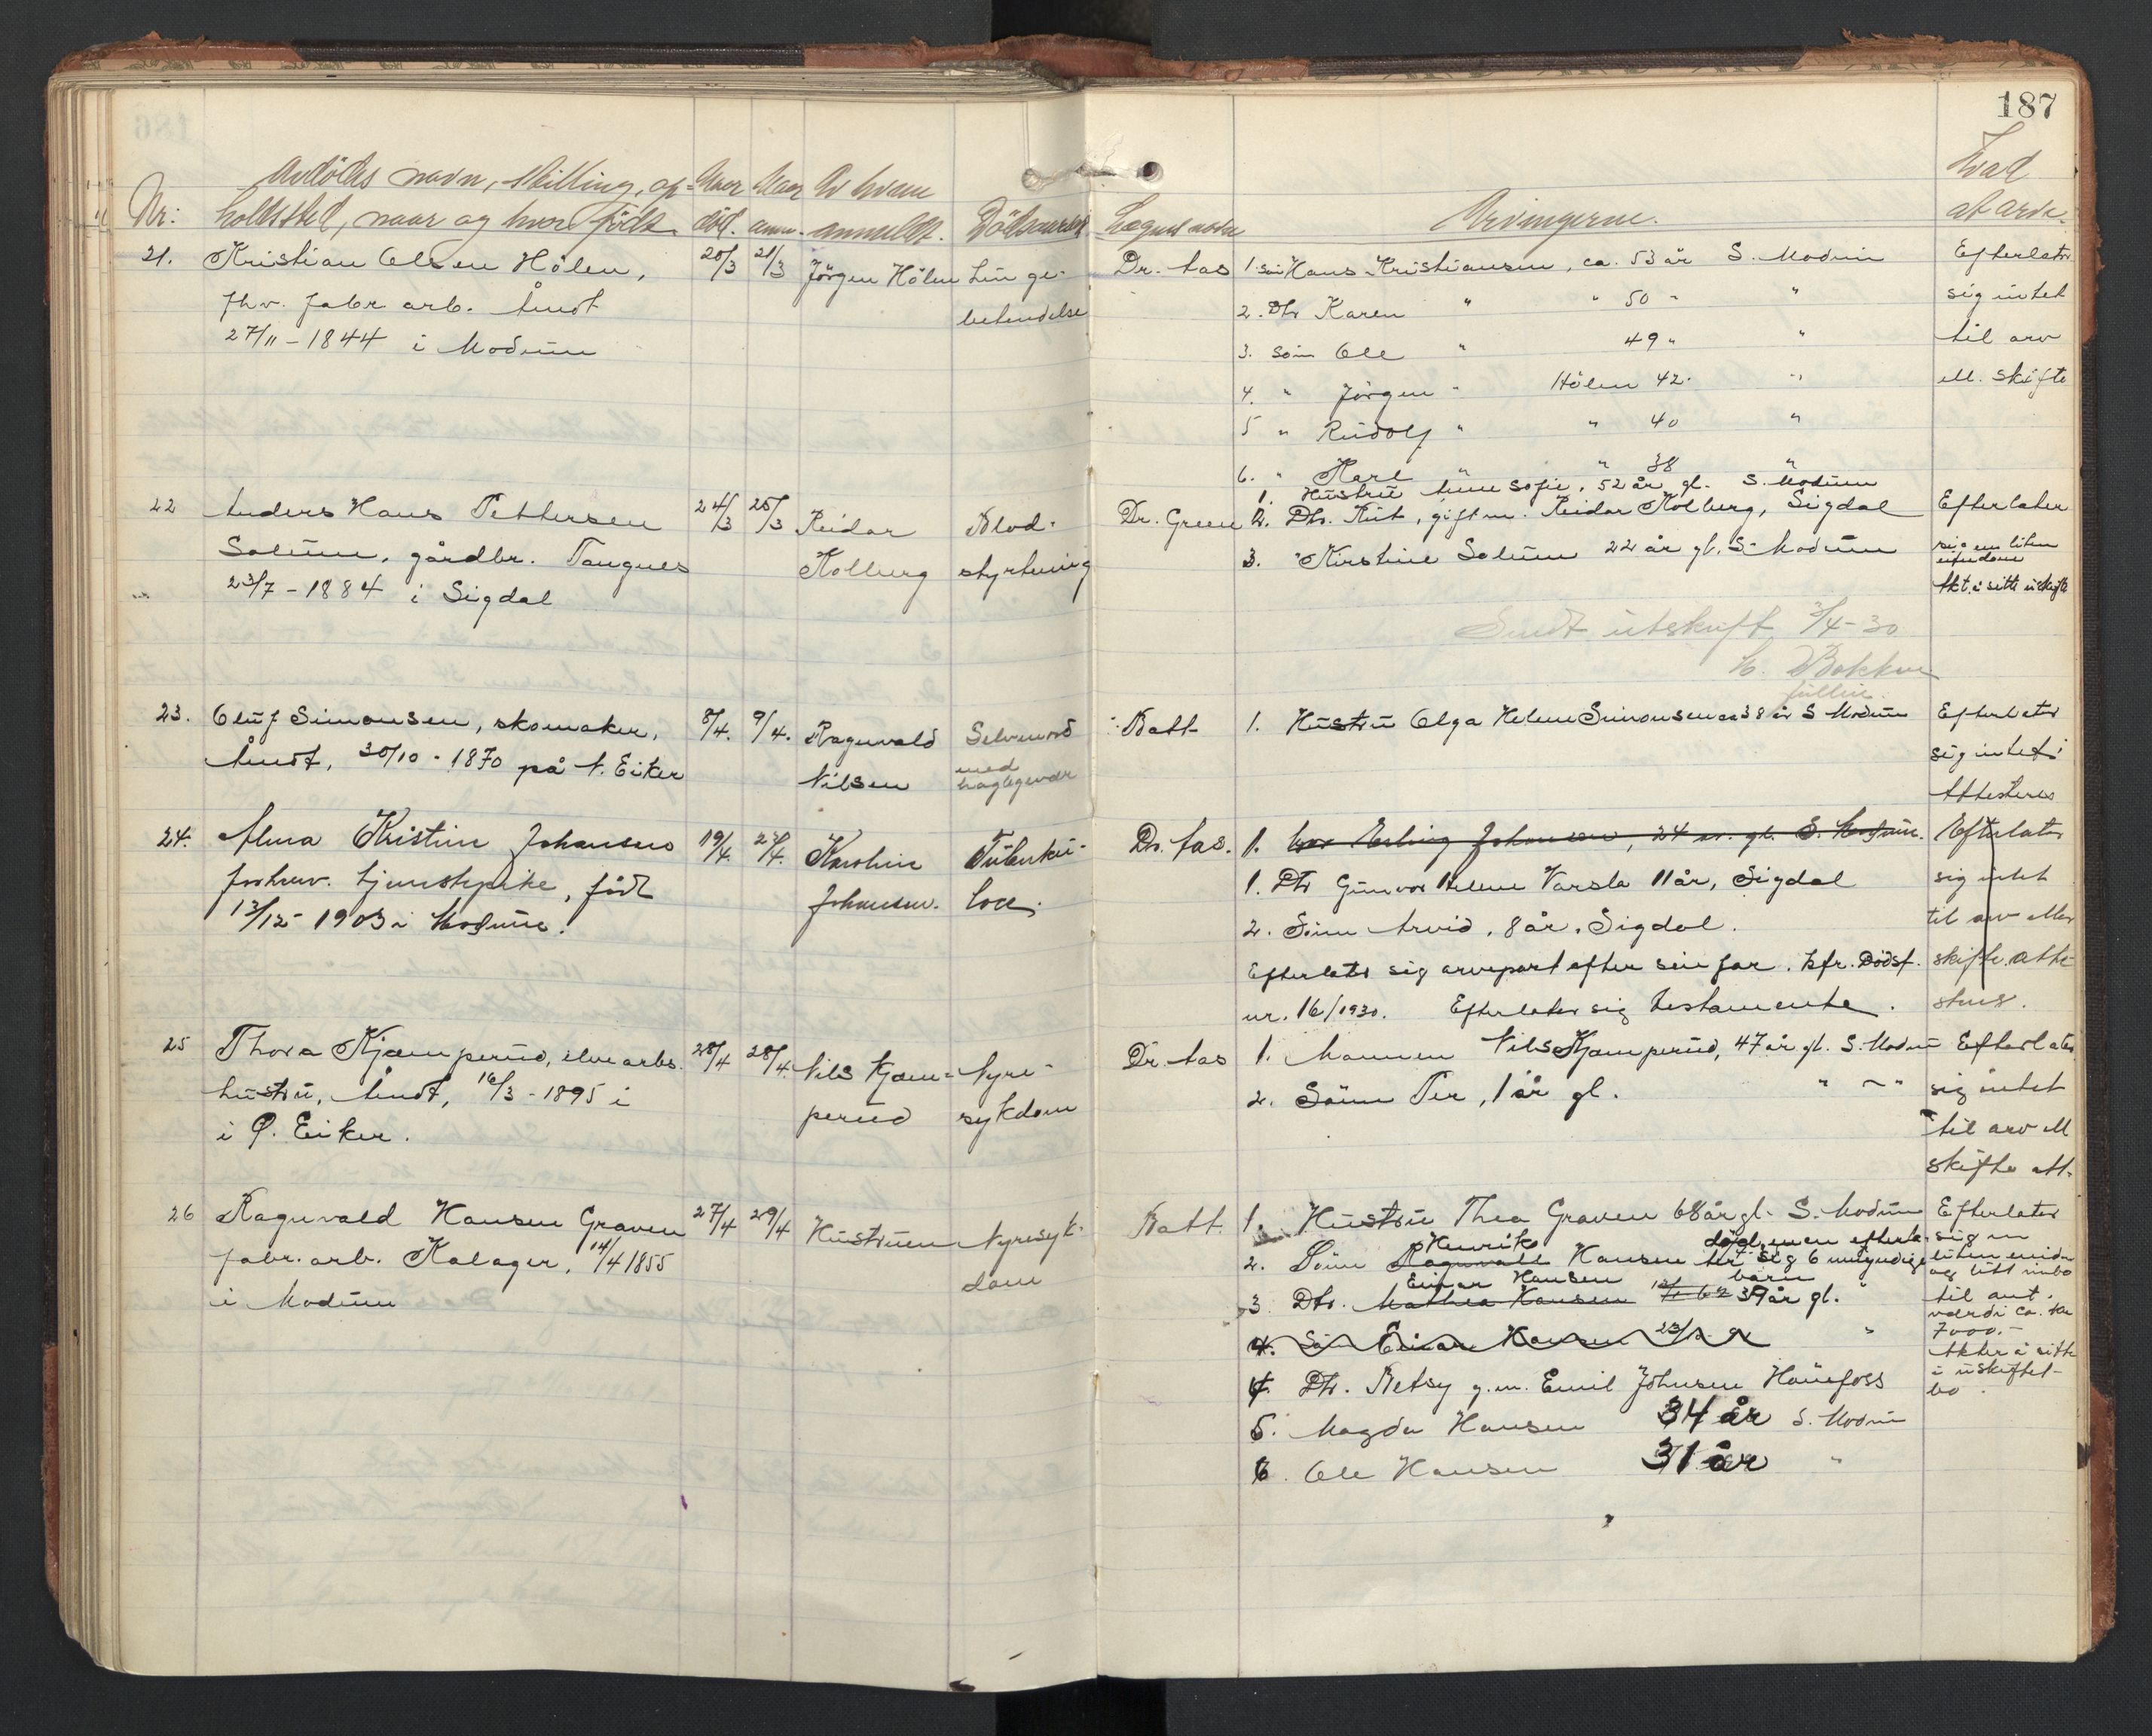 187
Avdödes navn, stilling, op- Naar Naar Av hvem Hvad
Nr: holdssted, naar og hvor född. död. anm. anmeldt. Dödsaarsak Lægens navn Arvingerne. at arve.
21. Kristian Olsen Hölen, 20/3 21/3 Jörgen Hölen Lunge-
fhv. fabr. arb. Åmot betendelse
27/11-1844 i Modum
Dr. Aas 1. Sön Hans Kristiansen, ca. 53 år S. Modum
2. Dtr Karen " " 50 " "
3. Sön Ole " 49 " "
4. " Jörgen " Hölen 42. "
5 " Rudolf " " 40 "
6. " Karl " 38 "
Efterlater
sig intet
til arv
ell. skifte
22 Anders Hans Pettersen 24/3 25/3 Reidar Blod-
Solum, gårdbr. Kolberg styrtning
23/7-1884 i Sigdal
Dr. Green 1. Hustru Anne Sofie, 52 år gl. S. Modum
2. Dtr. Rut, gift m. Reidar Kolberg, Sigdal
3. " Kirstine Solum 22 år gl. S. Modum
Efterlater
sig en liten
eiendom
Akt. å sitte i uskifte
Sendt utskrift 3/4-30
23. Oluf Simonsen, skomaker, 8/4. 9/4. Ragnvald Selvmord
Åmot, 30/10-1870 på N. Eiker Nilsen med
haglgevær
Batt 1. Hustru Olga Helene Simonsen ca 38 år S Modum
Efterlater
sig intet
Attesteres
24. Alma Kristine Johansen 19/4. Karoline Tuberku-
forhenv. tjenestepike, född Johansen. lose.
13/12-1903 i Modum.
Dr. Aas. 1. Erling Johansen, 24 år. gl. S. Modum.
1. Dtr Gunvor Helene Varslo 11 år, Sigdal
2. Sönn Arvid, 8 år, Sigdal.
Efterlater sig arvepart efter sin far. Kfr. Dödsf.
nr. 16/1930. Efterlater sig testamente.
Efterlater
sig intet
til arv eller
skifte. atte-
steres.
25 Thora Kjemperud, elvearb. 28/4 28/4. Nils Kjem- Nyre-
hustru, Åmot, 16/3-1895 i perud sykdom
i Ö. Eiker.
Dr. Aas 1. Mannen Nils Kjemperud, 47 år gl. S. Modum
2. Sönn Per, 1 år gl. " "
Efterlater
sig intet
til arv ell
skifte att.
26 Ragnvald Hansen Graven 27/4 29/4 Hustruen Nyresyk-
fabr. arb. Kalager, 14/4 1855 dom
i Modum
Batt. 1. Hustru Thea Graven 68 år gl. S. Modum
Henrik död, men efterla-
2. Sönn Ragnvald Hansen ter sig 6 umyndige
Einar Hansen barn
3 Dtr. Mathea Hansen 39 år gl. "
4. Sön Einar Hansen "
4. Dtr. Betsy g.m. Emil Johnsen Hönefoss
5. Magda Hansen 34 år S. Modum
6. Ole Hansen 31 år "
Efterlater
sig en
liten eiendom
og litt indbo
til ant.
verdi ca. kr
7000.-
Akter å sitte
i uskiftet
bo.